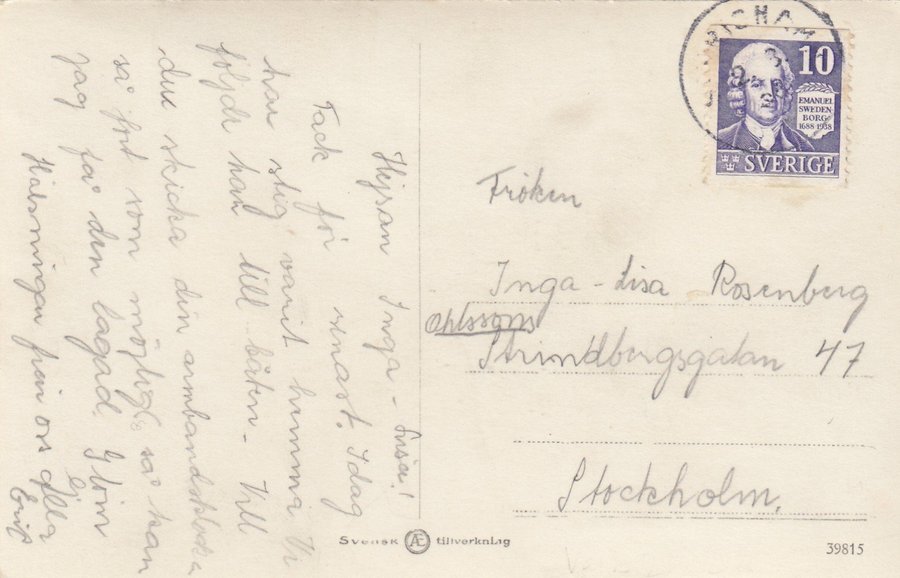 Hejsan Inga-Lisa!
Tack för senast. Idag
har stig varit hemma Vi
följde han till båten. Vill
du skicka din armbandsklocka
så fort som möjligt, så kan
jag få den lagad. Glöm
ej
Hälsningar från oss alla
Erik
10
EMANUEL
SWEDEN-
BORG
1688 1938
SVERIGE
Fröken
Inga-Lisa Rosenberg
Ohlssons
Strindbergsgatan 47
Stockholm.
Svensk Æ tillverkning
39815